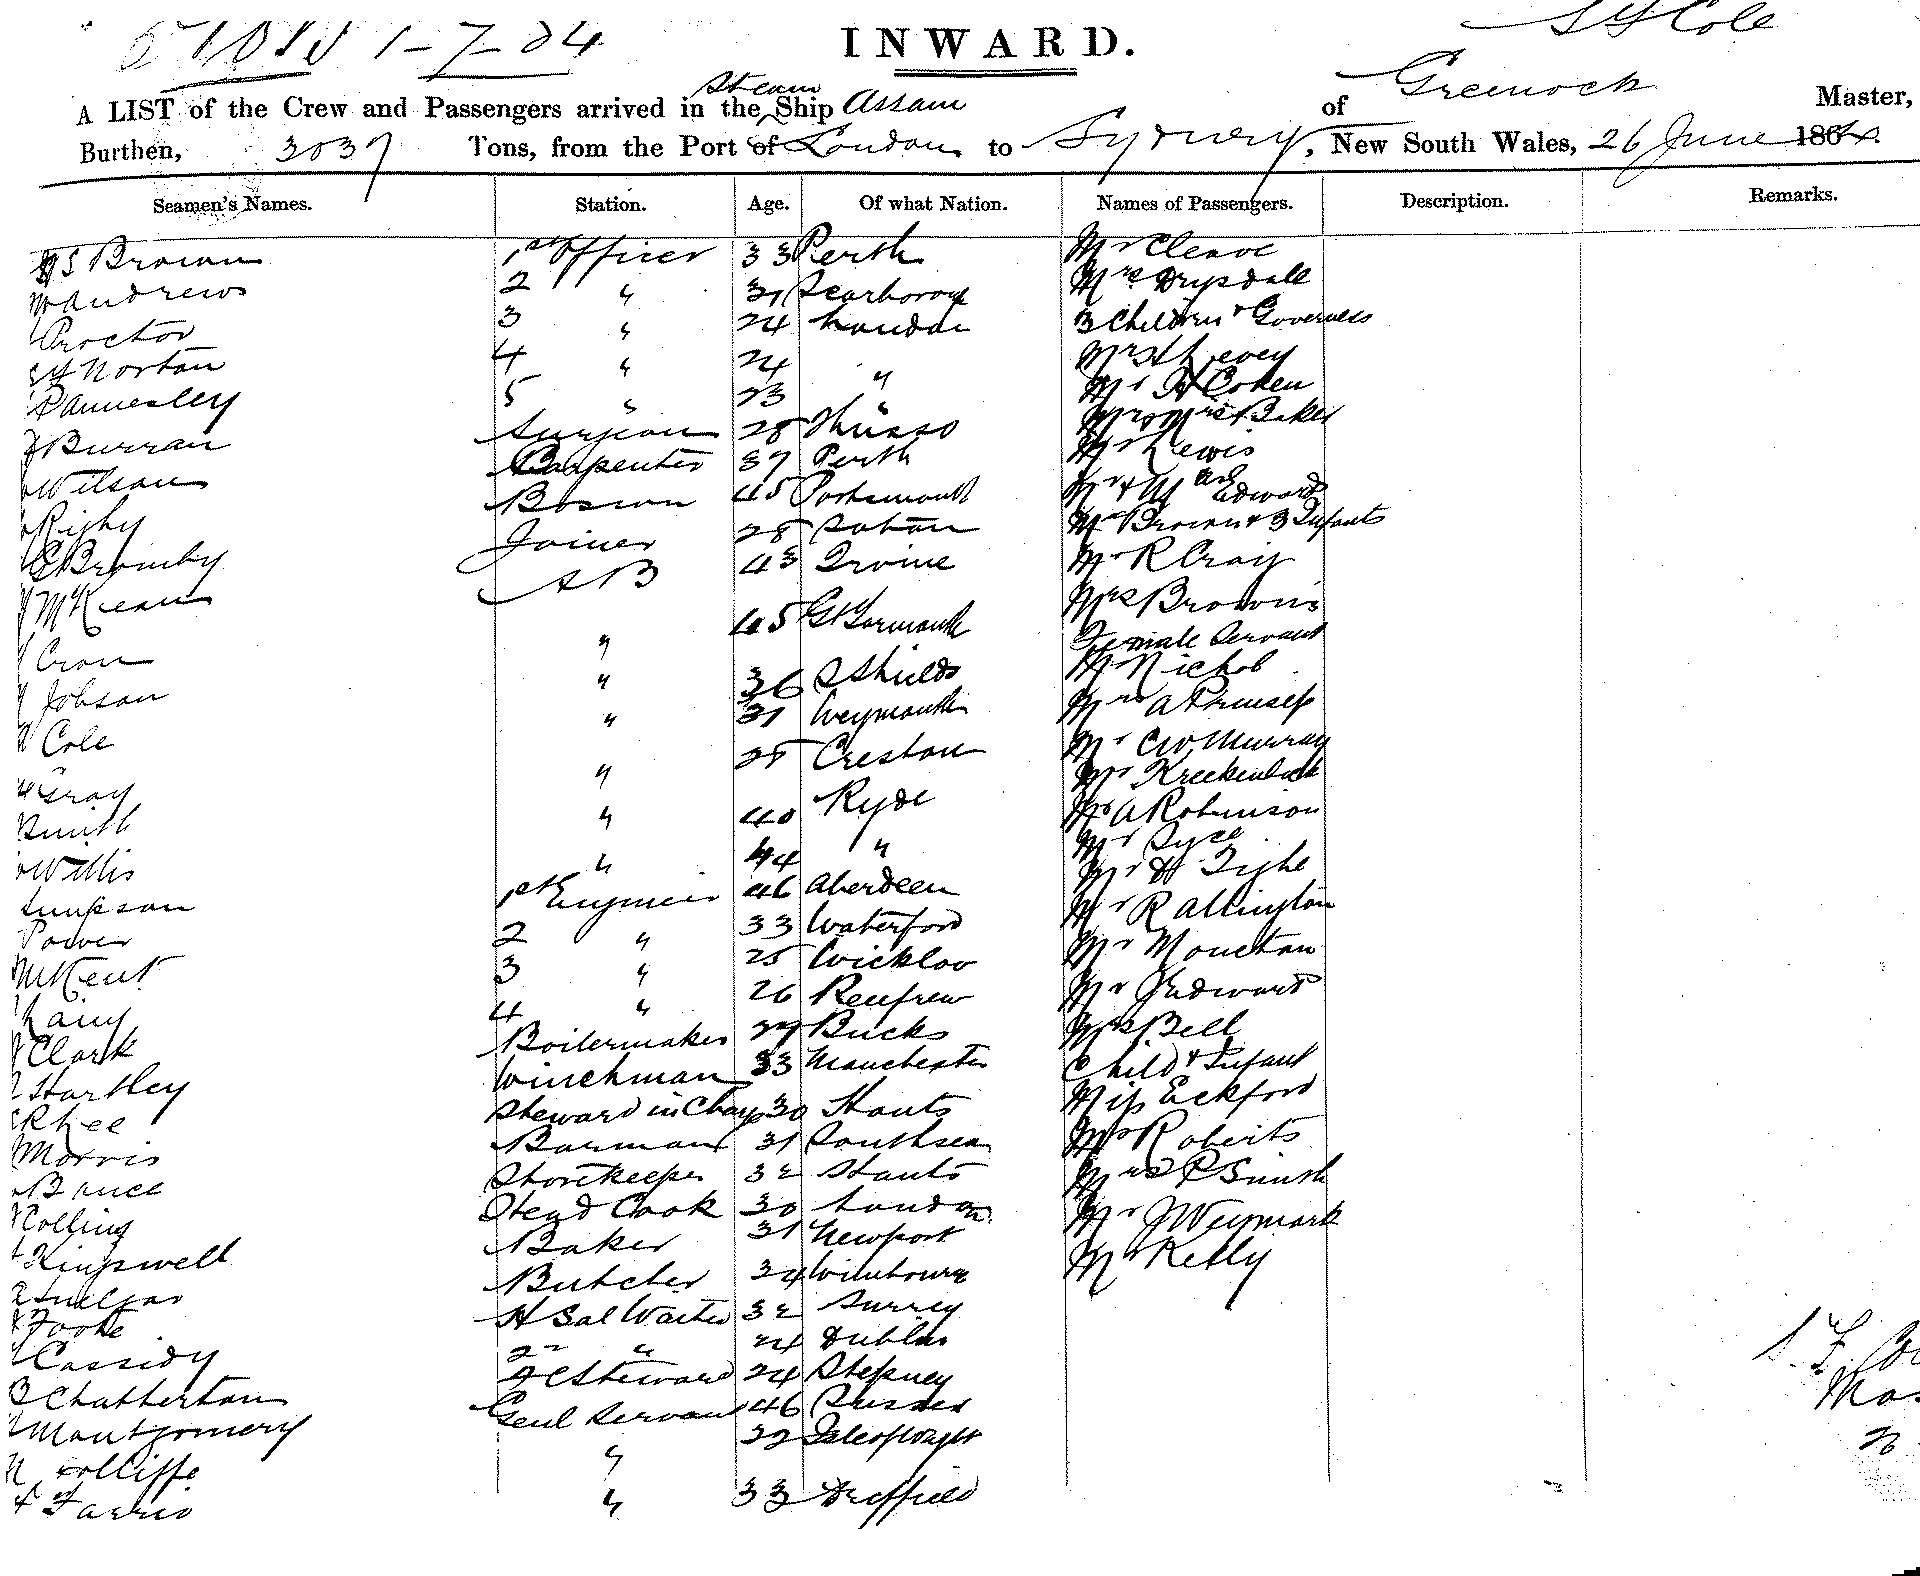 1-7-84
INWARD.
S G Cole
A LIST of the Crew and Passengers arrived in the Steam Ship Assam of Greenock Master,
Burthen, 3037 Tons, from the Port of London to Sydney, New South Wales, 26 June 188
Seamen's Names. Station. Age. Of what Nation. Names of Passengers. Description. Remarks.
Brown 1st Officer 33 Perth Mr Cleave
Andrews 2 " 31 Scarboro Mrs Drysdale
Proctor 3 " 24 London 3 Children & Governess
Norton 4 " 24 " Mrs Levey
Annesley 5 " 23 " Mr H Cohen
Burran Surgeon 28 Mr & Mrs Baker
Wilson Carpenter 37 Perth Mr Lewis
Rigby Bosun 45 Portsmouth Mr & Mrs Edwards
Bromby Joiner 28 Mrs Brown & 3 Infants
McKean AB 43 Irvine Mr R Craig
Mrs Brown's
Cron " 45 Gt Yarmouth Female Servant
Jobson " 36 S Shields Mr Nichol
Cole " 31 Weymouth Mrs A Prinsep
Gray " 28 Creston Mr C W Murray
Mr
Smith " 40 Ryde Mr A Robinson
Willis " 44 " Mr Syce
Mr H Tighe
Simpson 1st Engineer 46 Aberdeen Mr R Allington
Power 2 " 33 Waterford Mr Moncton
McKent 3 " 25 Wicklow Mr J Edwards
Lang 4 " 26 Renfrew Mrs Bell
Clark Boilermaker 27 Bucks Child & Infant
Hartley Winchman 33 Manchester Miss Eckford
Rhee Steward in Charge 30 Hants Mr Roberts
Morris Barman 31 Southsea Mrs P Smith
Bance Storekeeper 32 Hants Mr J Weymark
Collins Head Cook 30 London Mr Kelly
Kingswell Baker 31 Newport
Butcher 34 Wimbourne
Fooke H Sal Waiter 32 Surrey
Cassidy 2nd " 24 Dublin
Chatterton 2 C Steward 24 Stepney
Montgomery Genl Servant 46 Sussex
Jolliffe " 32 Isle of Wight
Farris " 33 Driffield